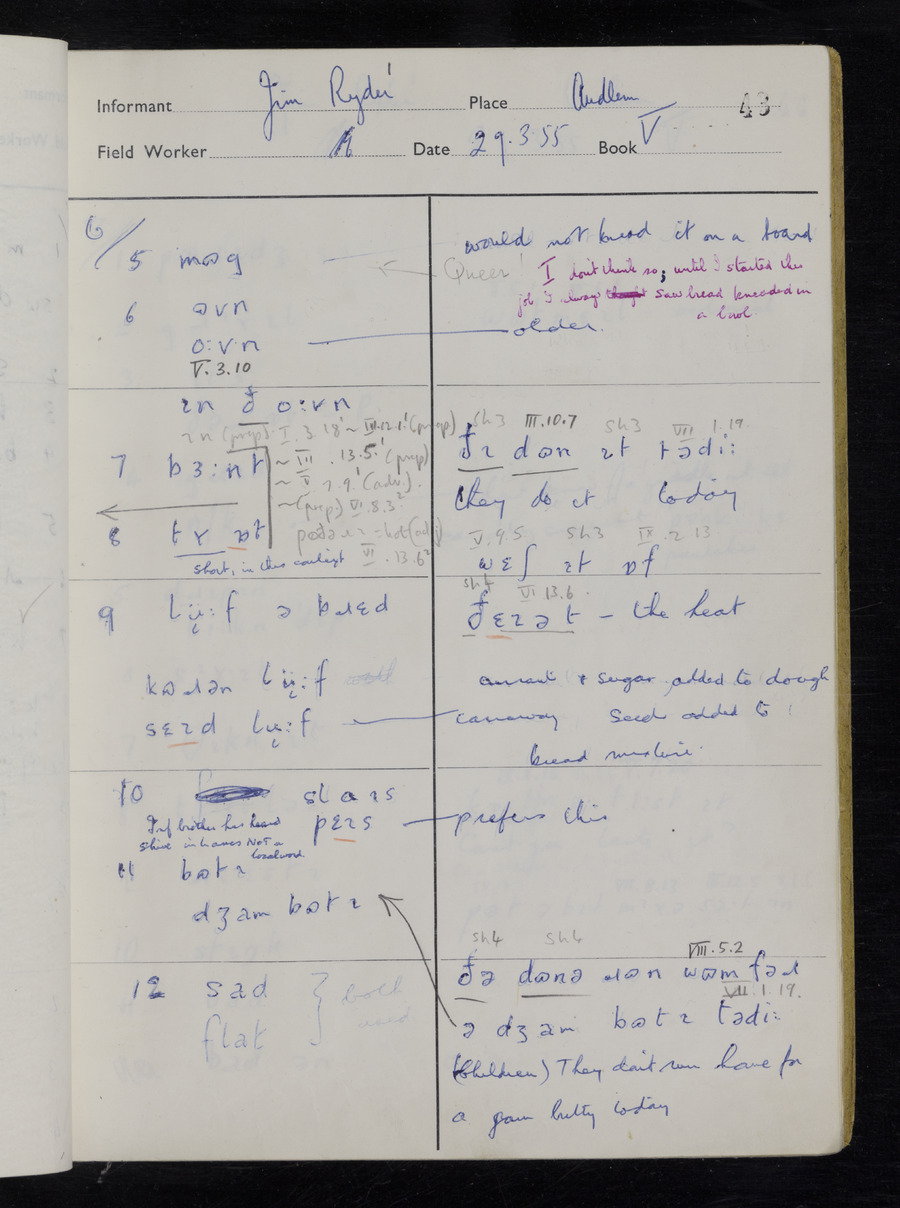 Informant Jim Ryder Place Audlem 43
Field Worker Date 29.3.55 Book V
6/5 mɷg
would not knead it on a board
Queer!
I don't think so; until I started this
job I always saw bread kneaded in
a bowl
6 ɷvn
o:vn older.
V.3.10
ɪn đ o:vn
ɪn (prep) I.3.18 ~ III.12.1 (prep)
7 bɜ:nt
~ III.13.5 (prep)
~ V.7.9 (adv).
~ (prep) VI.5.3
8 ɒt
short, in this context
VI.13.6
Sh3 III.10.7 Sh3 VII 1.19.
đɪ dɷn ɪt tədi:
they do it today
V.9.5. Sh3 IX.2.13
wɛʃ ɪt ɒf
Sh4 VI 13.6.
đɛɪət – the heat
9 lɪ̈:f ə bɹɛd
kɷɹən lɪ̈:f
currant & sugar added to dough
sɛɪd lɪ̈:f
caraway seed added to
bread mixture.
10 slaɪs
pɛɪs prefers this
Inf brother has heard
shive in Not a
local word
11 bɷtɪ
dʒam bɷtɪ
Sh4 Sh4 VIII.5.2
đə dɷnə ɹɷn wɷm fəɹ
VII.1.19.
ə dʒam bɷtɪ tədi:
(Children) They don't run home for
a jam butty today
12 sad } both
flat } used